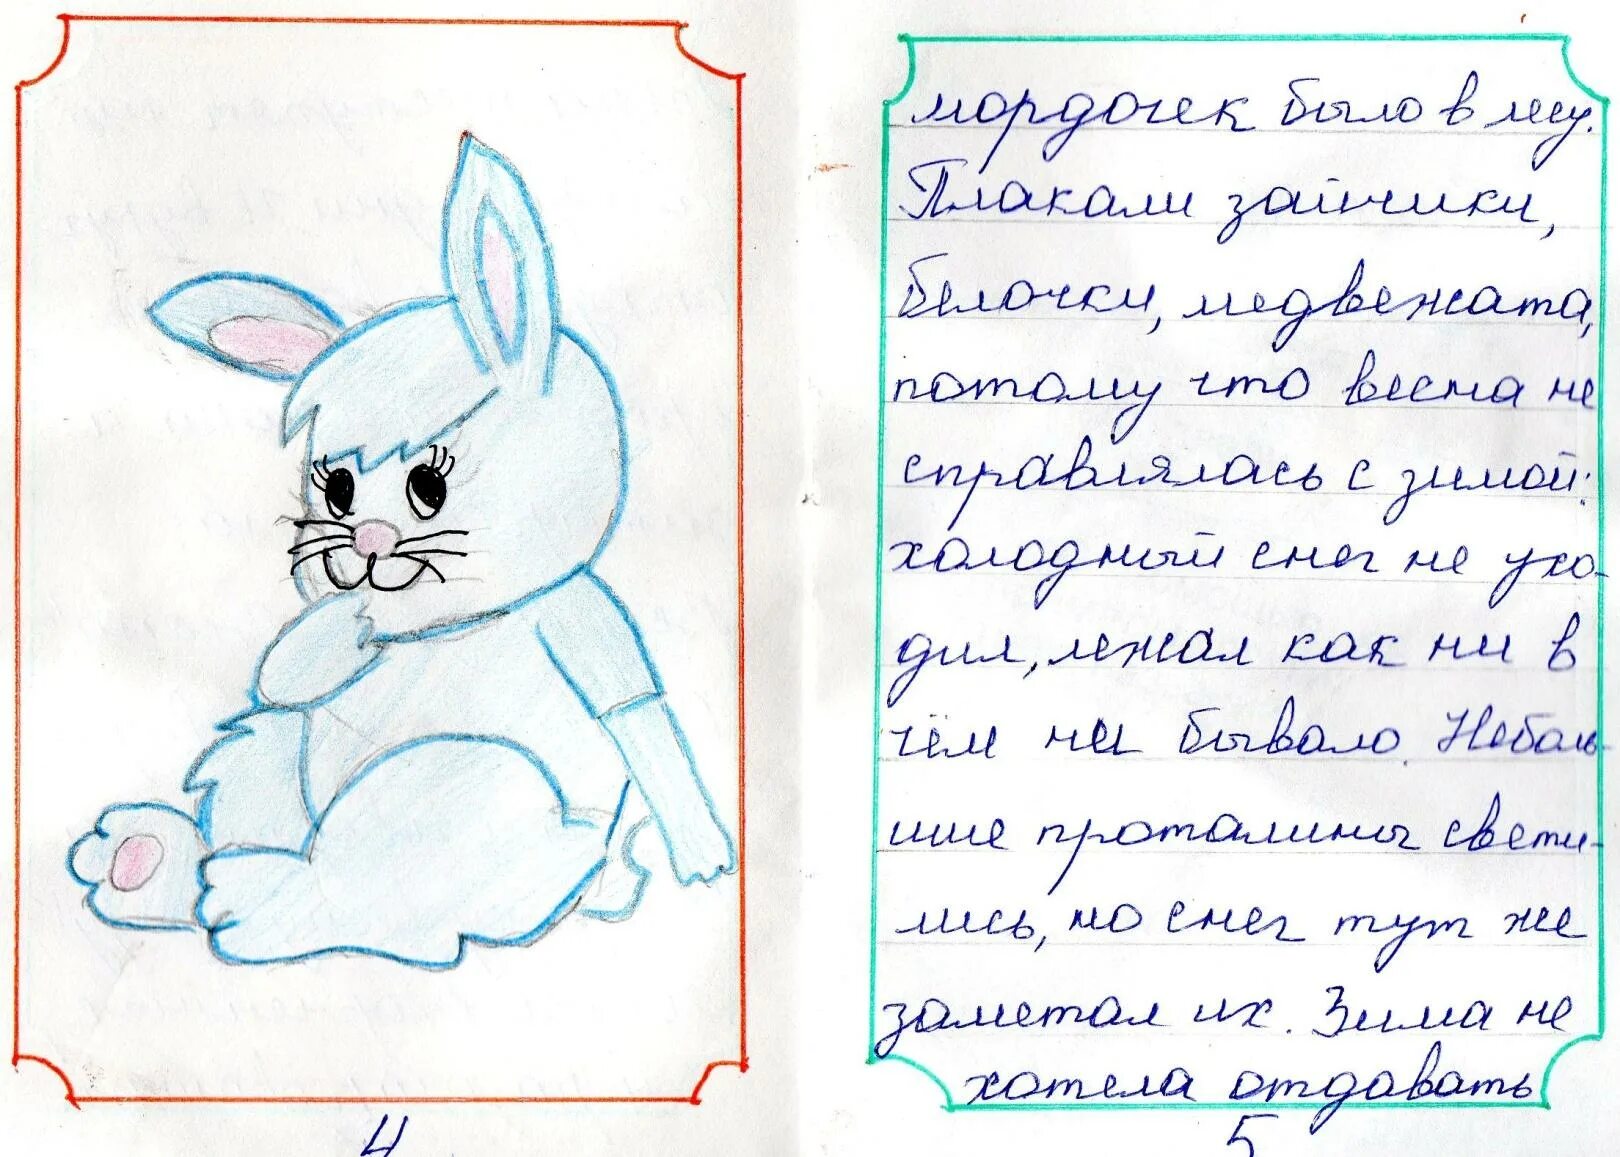 мордочек было в лесу.
Плакали зайчики,
белочки, медвежата,
потому что весна не
справлялась с зимой:
холодный снег не ухо-
дил, лежал как ни в
чём ни бывало. Неболь-
шие проталины свети-
лись, но снег тут же
заметал их. Зима не
хотела отдавать
4
5